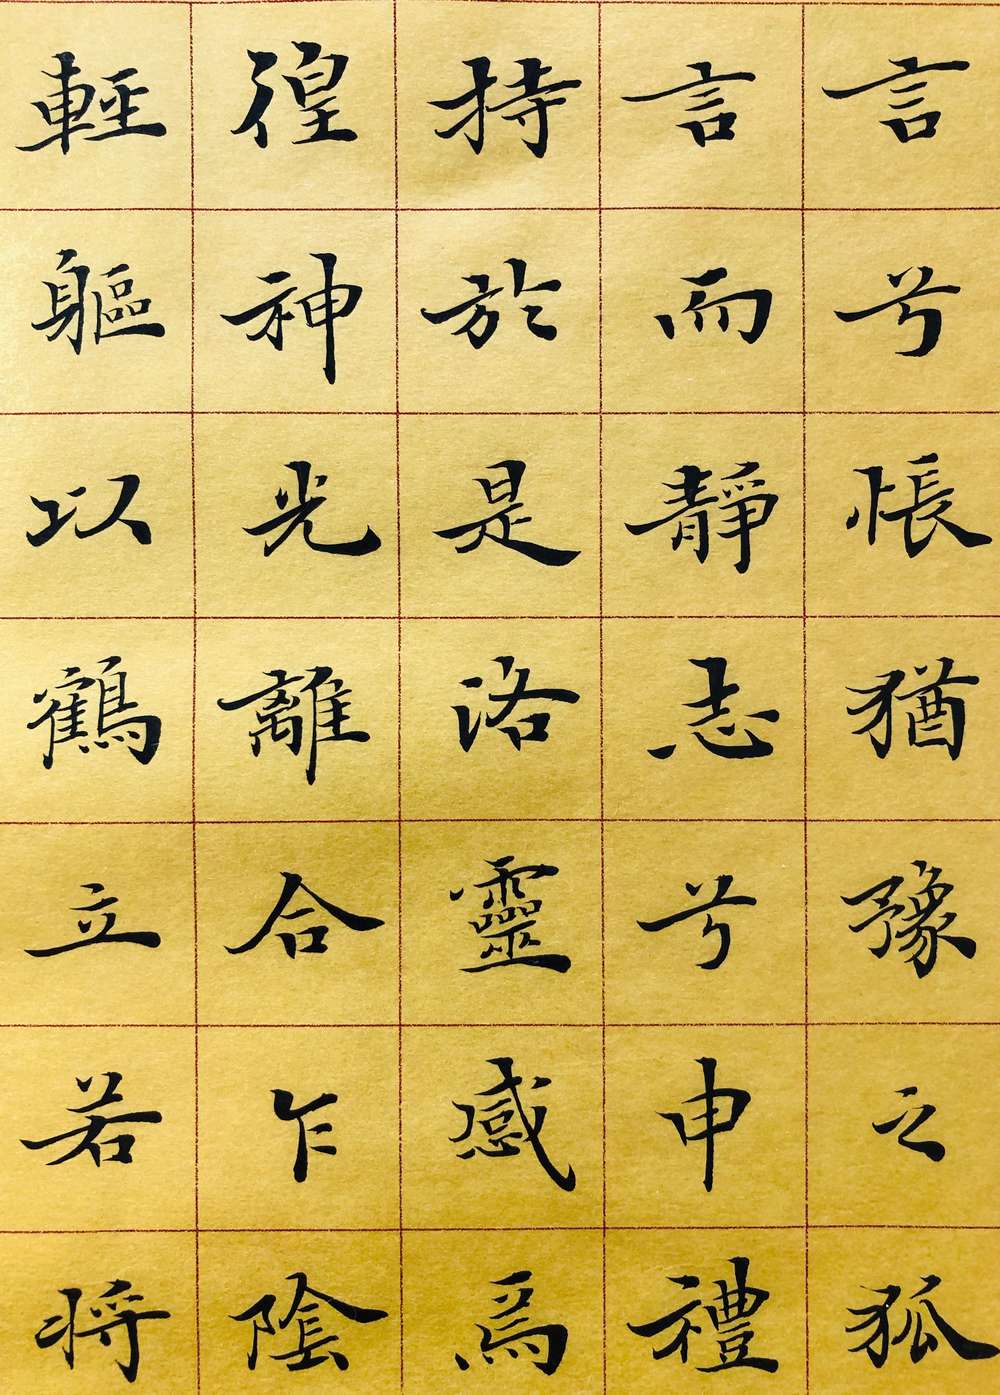 言兮悵猶豫之狐
言而靜志兮申禮
持於是洛靈感焉
徨神光離合乍陰
輕軀以鶴立若將